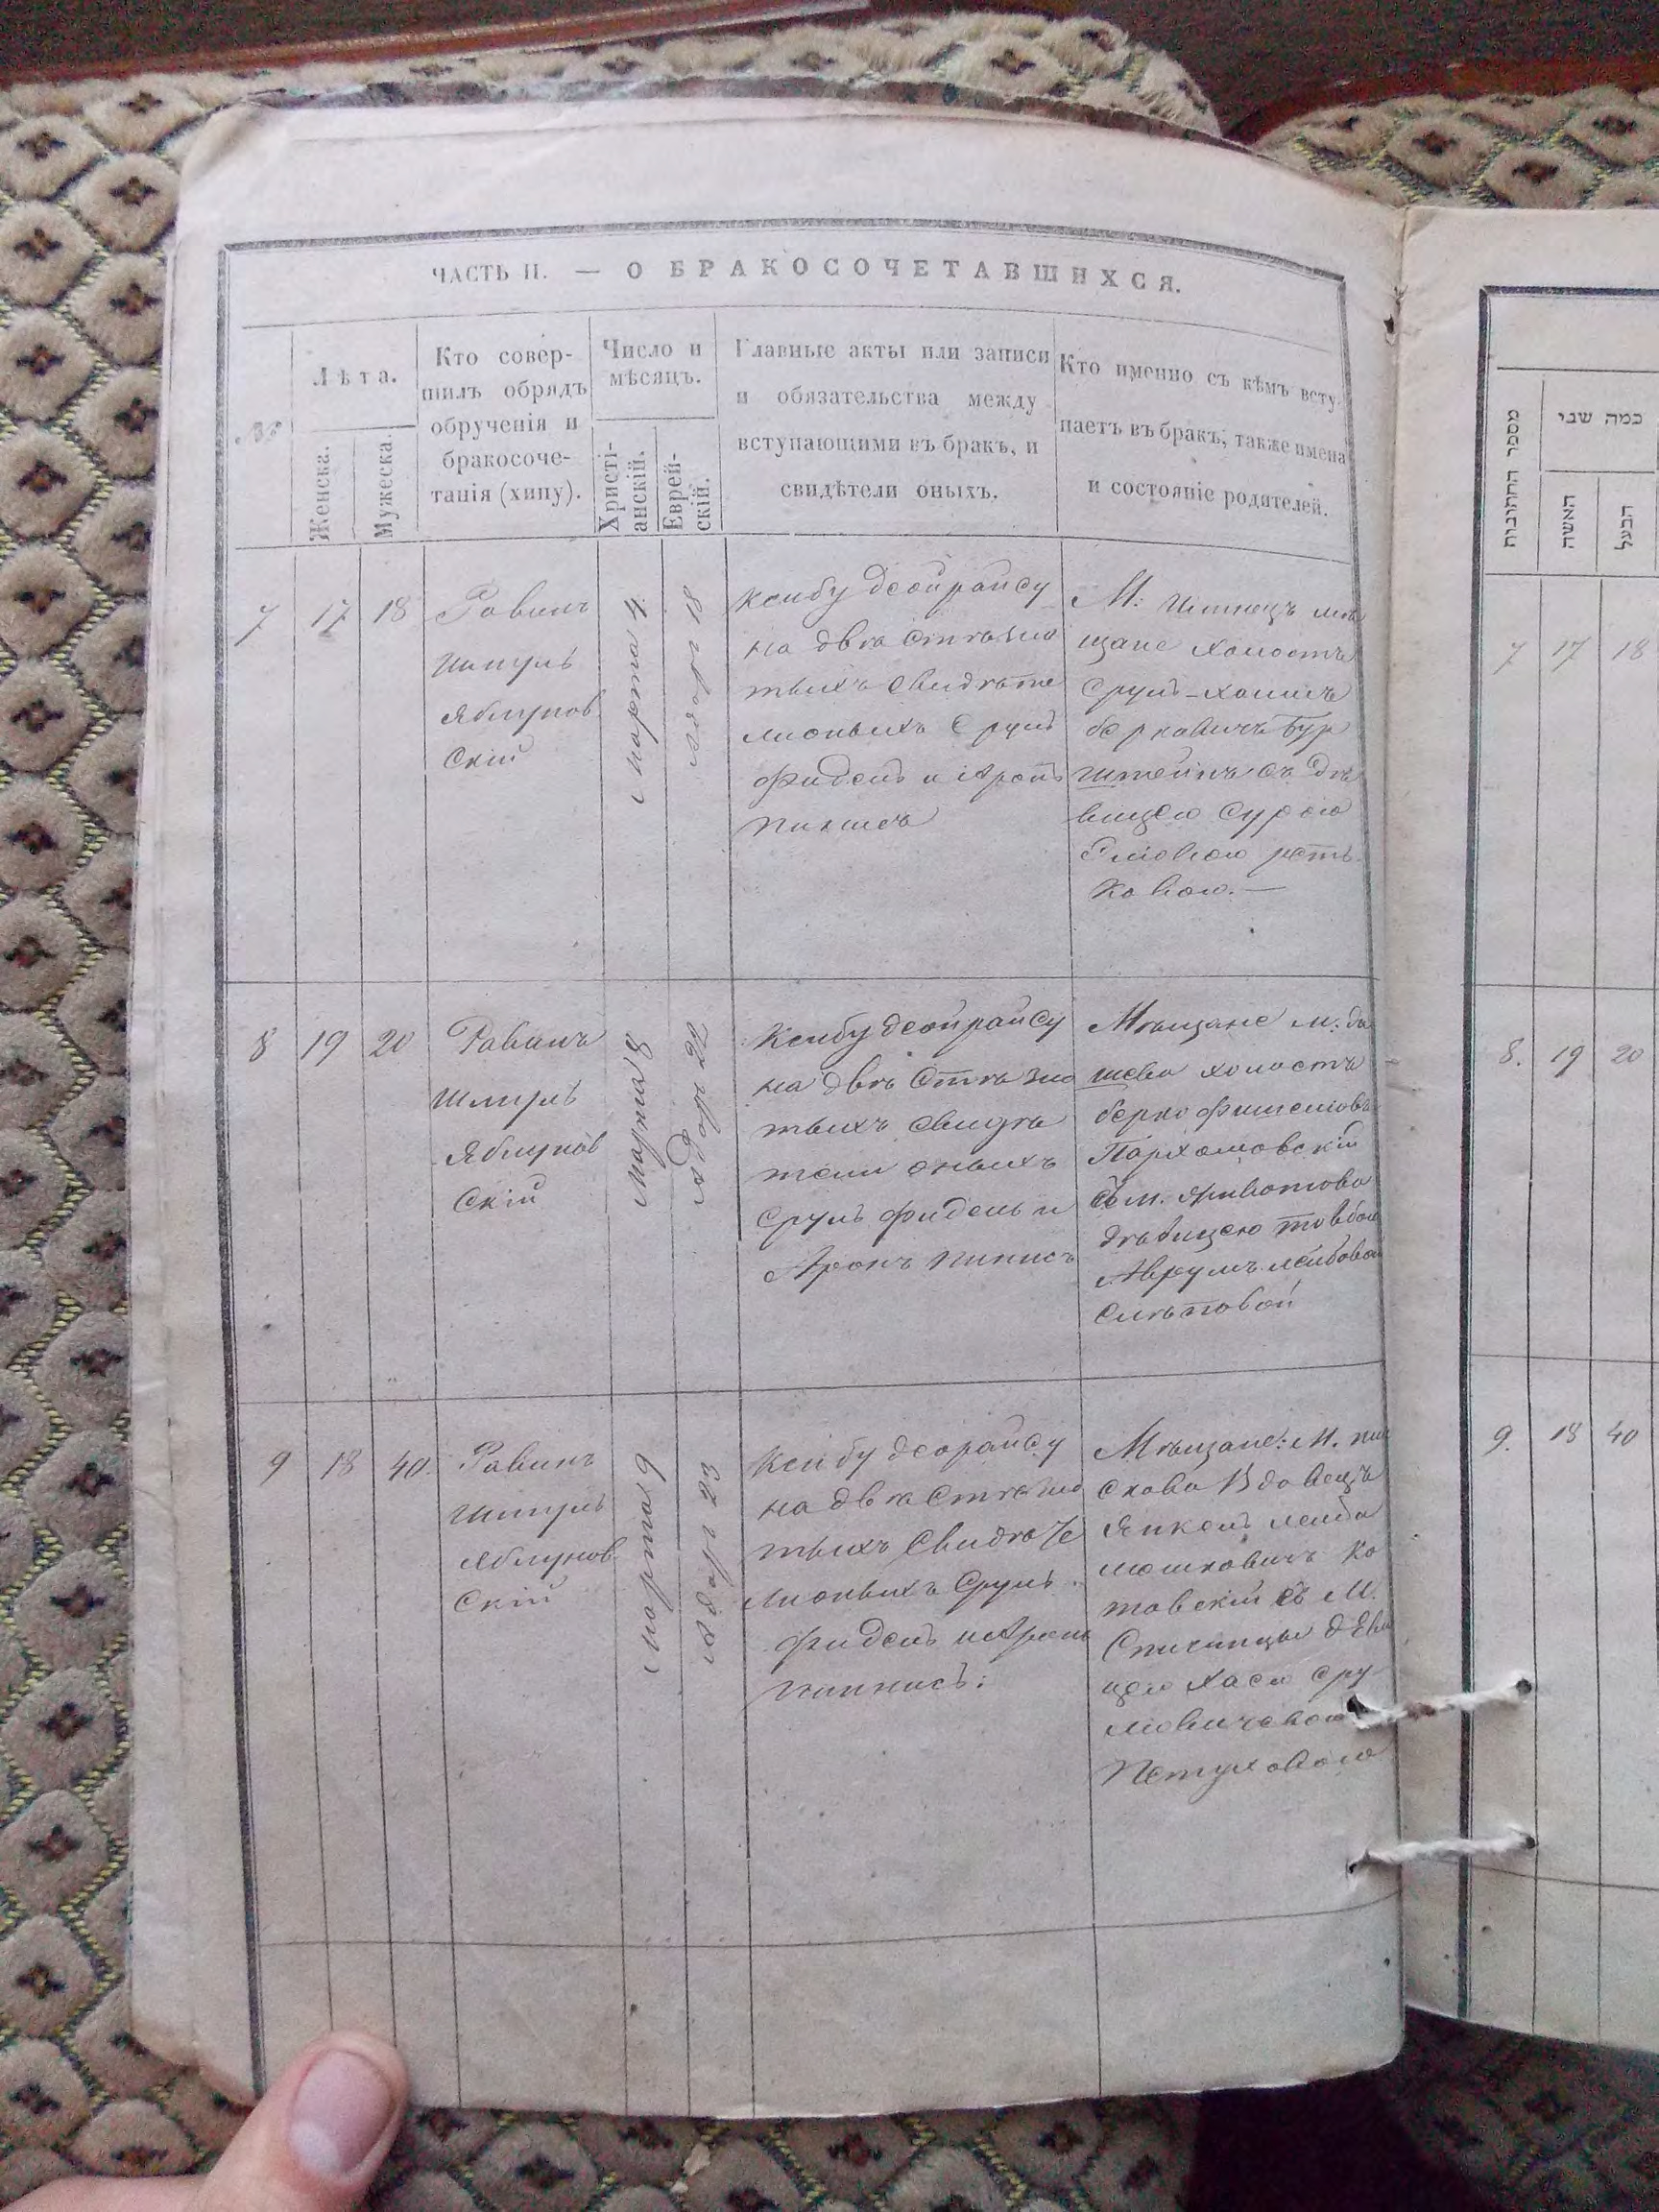 ЧАСТЬ II. — О БРАКОСОЧЕТАВШИХСЯ.
№
Лѣта.
Женска.
Мужеска.
Кто совер-
шилъ обрядъ
обрученія и
бракосоче-
танія (хипу).
Число и
мѣсяцъ.
Христі-
анскій.
Еврей-
скій.
Главные акты или записи
и обязательства между
вступающими въ бракъ, и
свидѣтели оныхъ.
Кто именно съ кѣмъ всту-
паетъ въ бракъ, также имена
и состояніе родителей.
7
17
18
Равинъ
Шмуль
Яблунов
скій
марта 4
Адаръ 18
Ксибу деойрайсу
на двѣ стѣ зло
тыхъ свидѣте
лионыхъ Сруль
Фидель и Аронъ
М:
щане холостъ
Сруль-Хаимъ
берковичъ Бур
штейнъ съ дѣ
вицею Сурою
ковою.—
8
19
20
Равинъ
Шмуль
Яблунов
скій
марта 8
Адаръ 22
Ксибу деойрайсу
на двѣ стѣ зло
тыхъ свидѣ
тели оныхъ
Сруль Фидель и
Аронъ Пинисъ
Мѣщане м: да
шева холостъ
берко Фишелювъ
Пархомовскій
съ м. Животова
дѣвицею Товбою
Аврумъ лейбовою
9
18
40.
Равинъ
Шмуль
Яблунов
скій
марта 9
Адаръ 23
Ксибу деорайсу
на двѣ стѣ зло
тыхъ свидѣте
лионыхъ Сруль
Фидель и Аронъ
Пинисъ:
Мѣщане: М. пи
скова Вдовецъ
Янкель лейба
мошковичъ Ко
товскій съ М.
Спичинцы дѣви
цею Хаси Сру
левичевою
Петуховою
מספר החתונות
כמה שני
האשה
הבעל
7
17
18
8.
19
20
9.
18
40